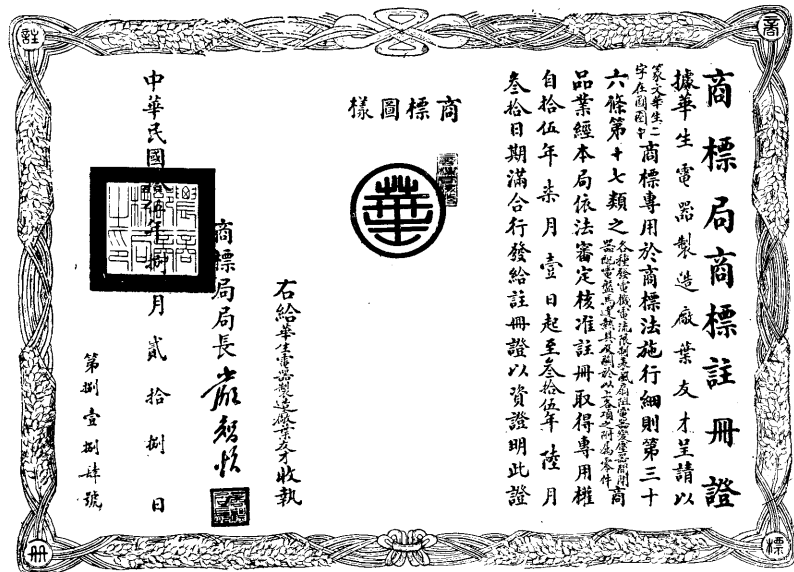 商標局商標註冊證
據華生電器製造廠葉友才呈請以
篆文華生二字在圓圈中商標專用於商標法施行細則第三十
六條第十七類之各種發電機電流限制表風扇阻電器變壓器開關器配電盤馬達熱具及關於以上各項之附屬零件商
品業經本局依法審定核准註冊取得專用權
自拾伍年柒月壹日起至叁拾伍年陸月
叁拾日期滿合行發給註冊證以資證明此證
商標圖樣
右給華生電器製造廠葉友才收執
商標局局長嚴智怡
中華民國拾伍年捌月貳拾捌日
第捌壹捌肆號
商
標
註
冊